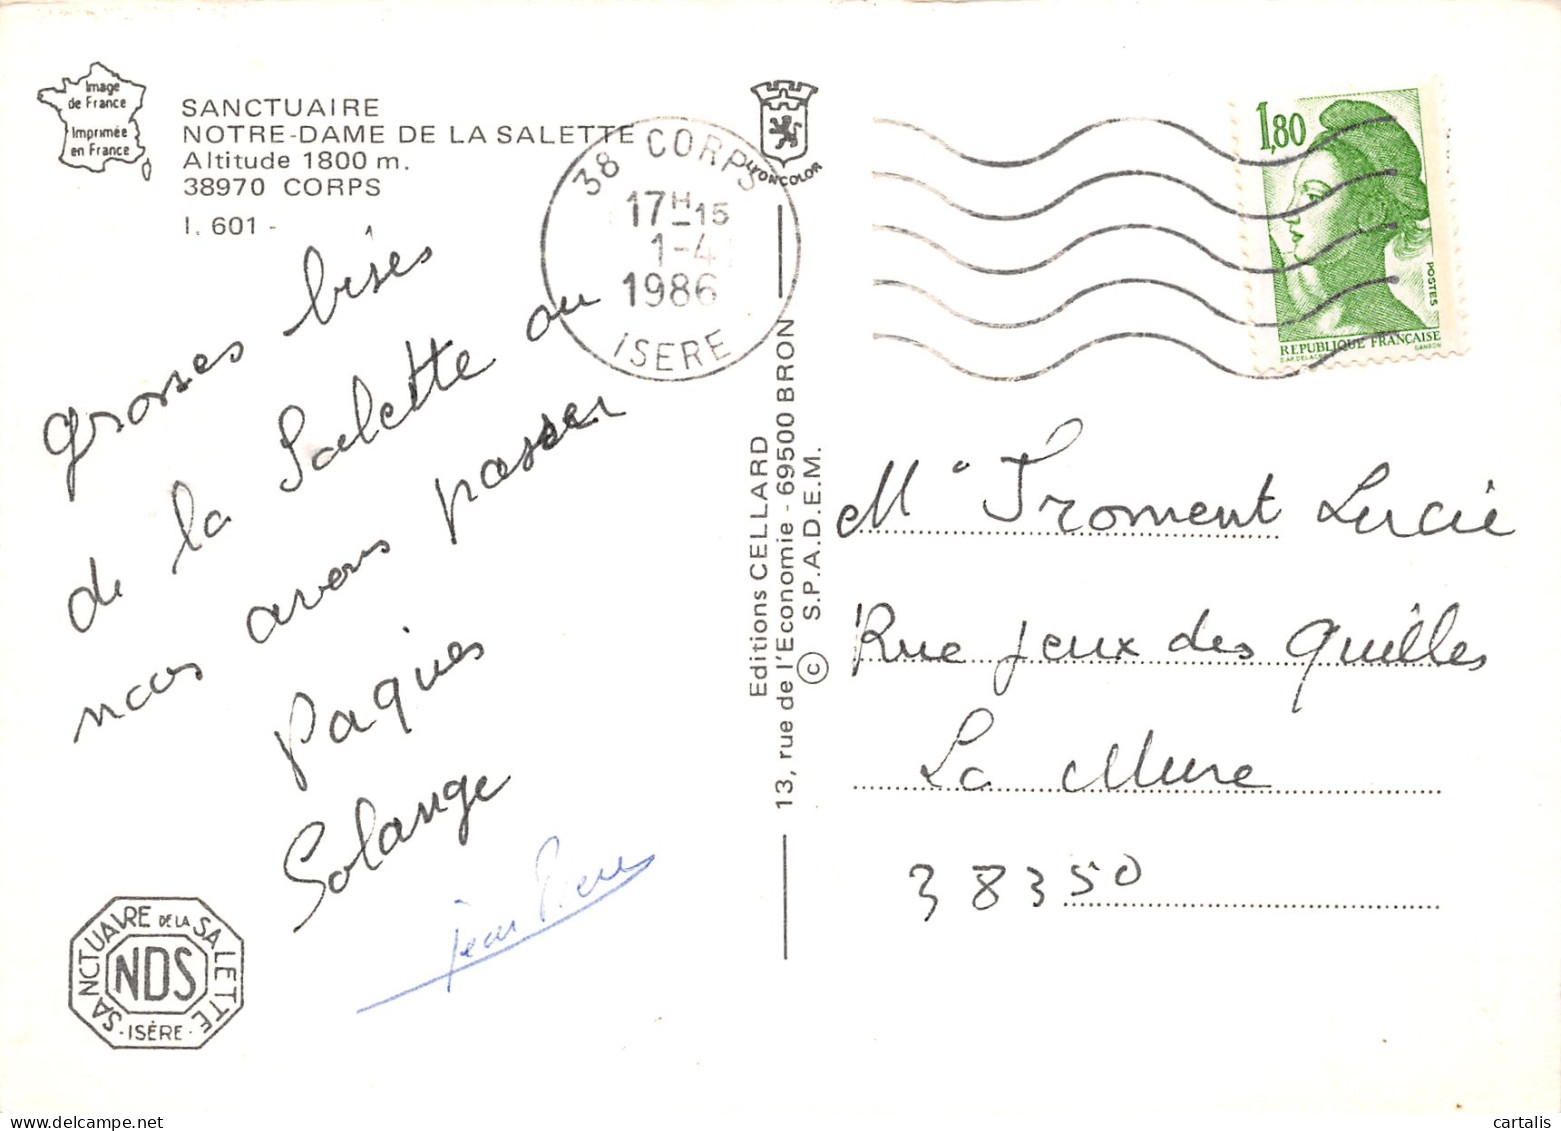 Image
de France
Imprimée
en France
SANCTUAIRE
NOTRE-DAME DE LA SALETTE
Altitude 1800 m.
38970 CORPS
I. 601 -
grosses bises
de la Salette ou
nous avons passer
Paques
Solange
Jean Pierre
SANCTUAIRE DE LA SALETTE
NDS
- ISÈRE -
38 CORPS
17H-15
1-4
1986
ISERE
LYONCOLOR
Editions CELLARD
13, rue de l'Economie - 69500 BRON
© S.P.A.D.E.M.
1,80
POSTES
REPUBLIQUE FRANÇAISE
GANDON
Me Froment Lucie
Rue jeux des quilles
La Mure
38350
cartalis